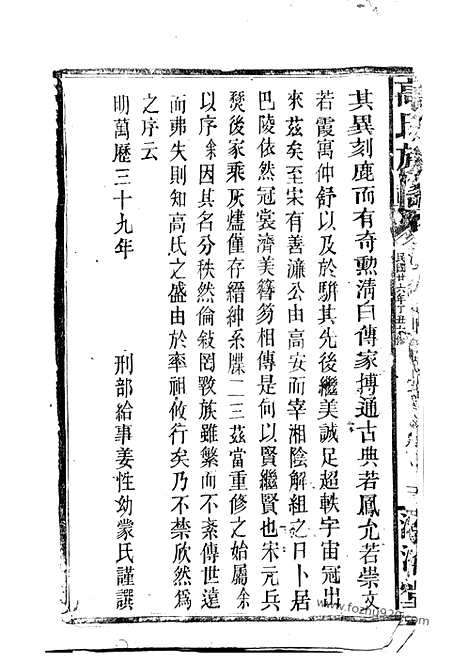 其異刻鹿而有奇勲清白傳家搏通古典若鳳允若崇文
若霞寓仲舒以及於駢其先後繼美誠足超軼宇宙冠出
來茲矣至宋有善濂公由高安而宰湘陰解組之日卜居
巴陵依然冠裳濟美簪笏相傳是何以賢繼賢也宋元兵
燹後家乘灰燼僅存縉紳系牒一二三茲當重修之始屬余
以序余因其名分秩然倫敍罔斁族雖繁而不紊傳世遠
而弗失則知高氏之盛由於率祖攸行矣乃不禁欣然爲
之序云
明萬歷三十九年 刑部給事姜性幼蒙氏謹譔
高氏族譜
民國廿六年丁丑六修
堂
www.fozhu920.com